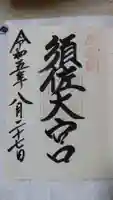 須佐大宮
令和五年八月二十七日